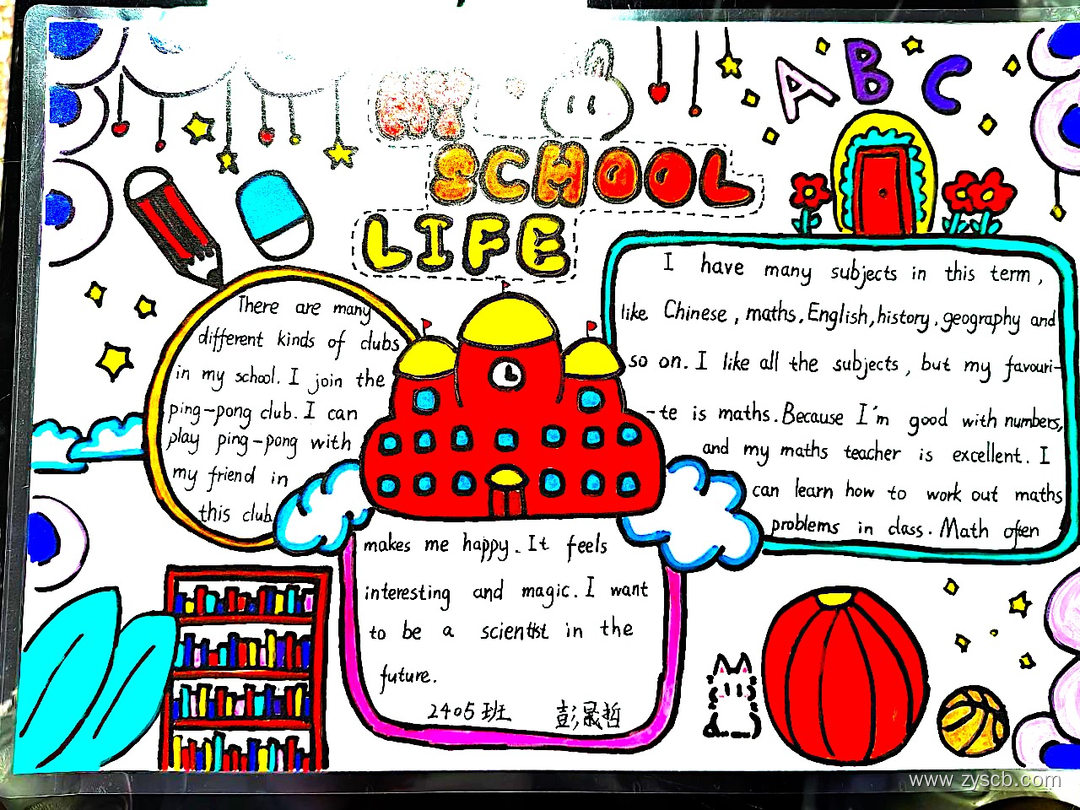 MY
SCHOOL
LIFE
A B C
There are many
different kinds of clubs
in my school. I join the
ping-pong club. I can
play ping-pong with
my friend in
this club
I have many subjects in this term,
like Chinese, maths, English, history, geography and
so on. I like all the subjects, but my favouri-
-te is maths. Because I'm good with numbers,
and my maths teacher is excellent. I
can learn how to work out maths
problems in class. Math often
makes me happy. It feels
interesting and magic. I want
to be a scientist in the
future.
2405班 彭晟哲
www.zyscb.com